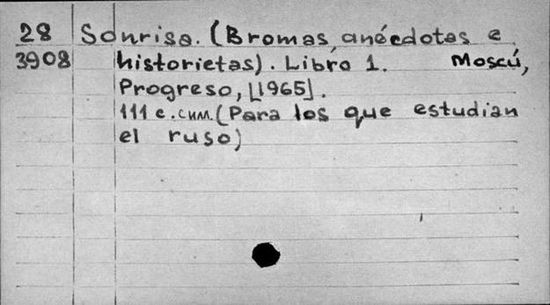 28 Sonrisa. (Bromas, anécdotas e
3908 historietas). Libro 1. Moscú,
Progreso, [1965].
111 с. илл. (Para los que estudian
el ruso)